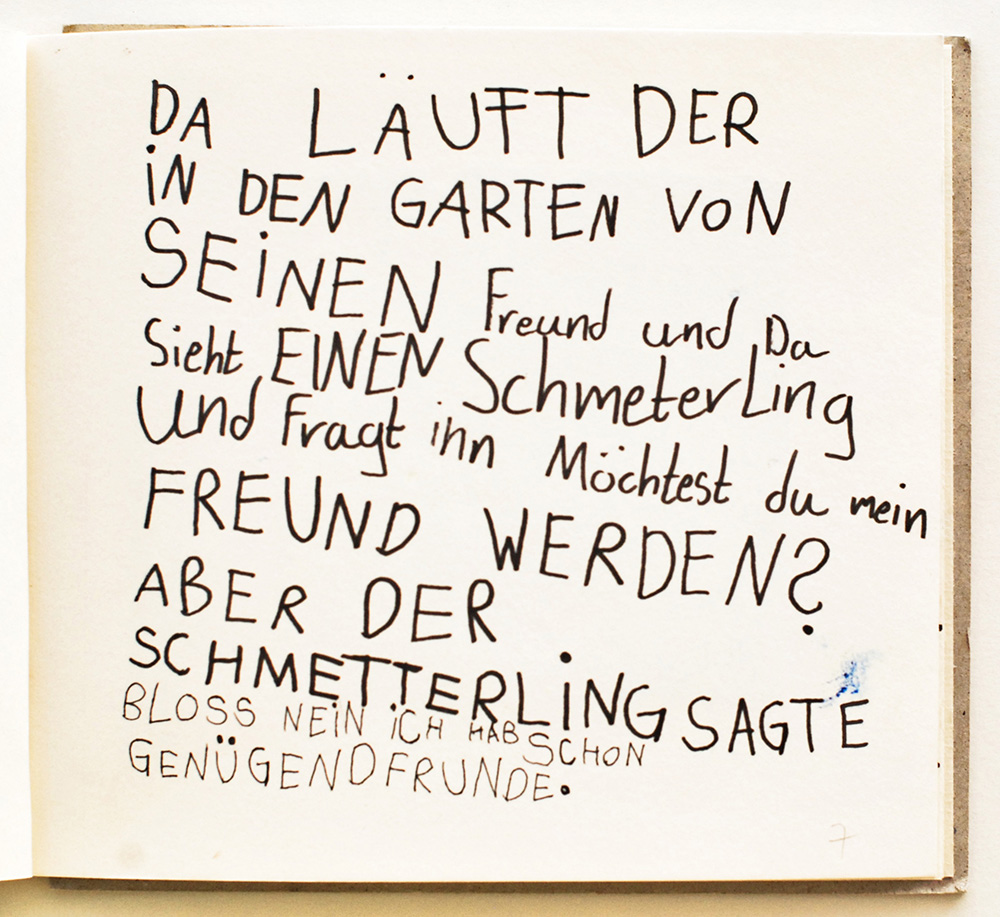 DA LÄUFT DER
iN DEN GARTEN VoN
SEiNEN Freund und Da
Sieht EINEN SchmeterLing
Und Fragt ihn Möchtest du mein
FREUND WERDEN?
ABER DER
SCHMETTERLiNG SAGTE
BLOSS NEIN iCH HAB SCHON
GENÜGEND FRUNDE.
7